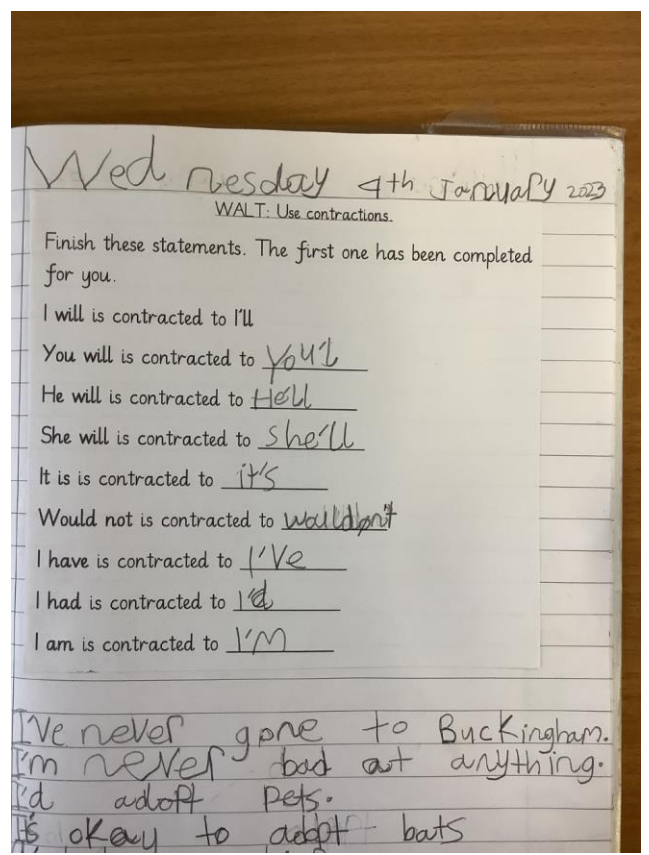 Wednesday 4th January 2023
WALT: Use contractions.
Finish these statements. The first one has been completed
for you.
I will is contracted to I'll
You will is contracted to you'l
He will is contracted to He'll
She will is contracted to she'll
It is is contracted to it's
Would not is contracted to
I have is contracted to I've
I had is contracted to I'd
I am is contracted to I'M
I've never gone to Buckingham.
I'm never bad at anything.
I'd adopt pets.
It's okay to adopt bats